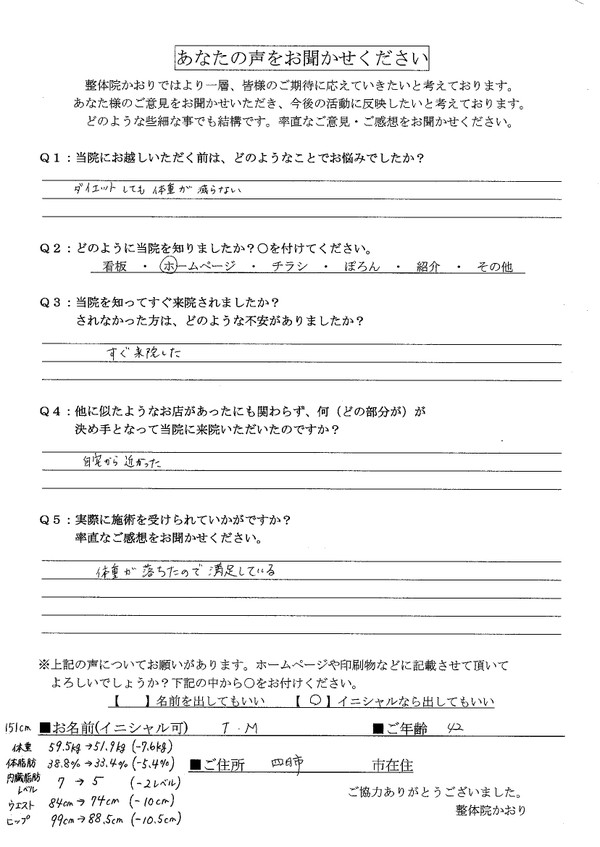 あなたの声をお聞かせください
整体院かおりではより一層、皆様のご期待に応えていきたいと考えております。
あなた様のご意見をお聞かせいただき、今後の活動に反映したいと考えております。
どのような些細な事でも結構です。率直なご意見・ご感想をお聞かせください。
Q1：当院にお越しいただく前は、どのようなことでお悩みでしたか？
ダイエットしても体重が減らない
Q2：どのように当院を知りましたか？〇を付けてください。
看板 ・ ホームページ ・ チラシ ・ ぽろん ・ 紹介 ・ その他
Q3：当院を知ってすぐ来院されましたか？
されなかった方は、どのような不安がありましたか？
すぐ来院した
Q4：他に似たようなお店があったにも関わらず、何（どの部分が）が
決め手となって当院に来院いただいたのですか？
自宅から近かった
Q5：実際に施術を受けられていかがですか？
率直なご感想をお聞かせください。
体重が落ちたので満足している
※上記の声についてお願いがあります。ホームページや印刷物などに記載させて頂いて
よろしいでしょうか？下記の中から〇をお付けください。
【 】名前を出してもいい 【 〇 】イニシャルなら出してもいい
151cm ■お名前(イニシャル可) T.M ■ご年齢 42
体重 59.5kg→51.9kg (-7.6kg)
体脂肪 38.8%→33.4% (-5.4%) ■ご住所 四日市 市在住
内臓脂肪レベル 7→5 (-2レベル)
ウエスト 84cm→74cm (-10cm)
ヒップ 99cm→88.5cm (-10.5cm)
ご協力ありがとうございました。
整体院かおり